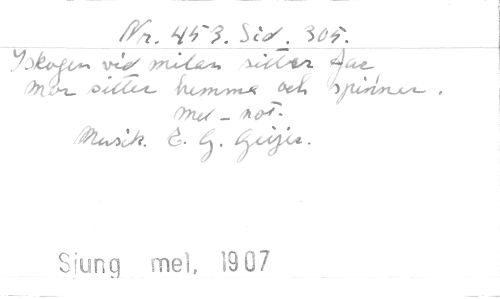 Nr. 453. Sid. 305.
I skogen vid milan sitter far
mor sitter hemma och spinner.
mel-not.
Musik. E. G. Geijer.
Sjung mel, 1907